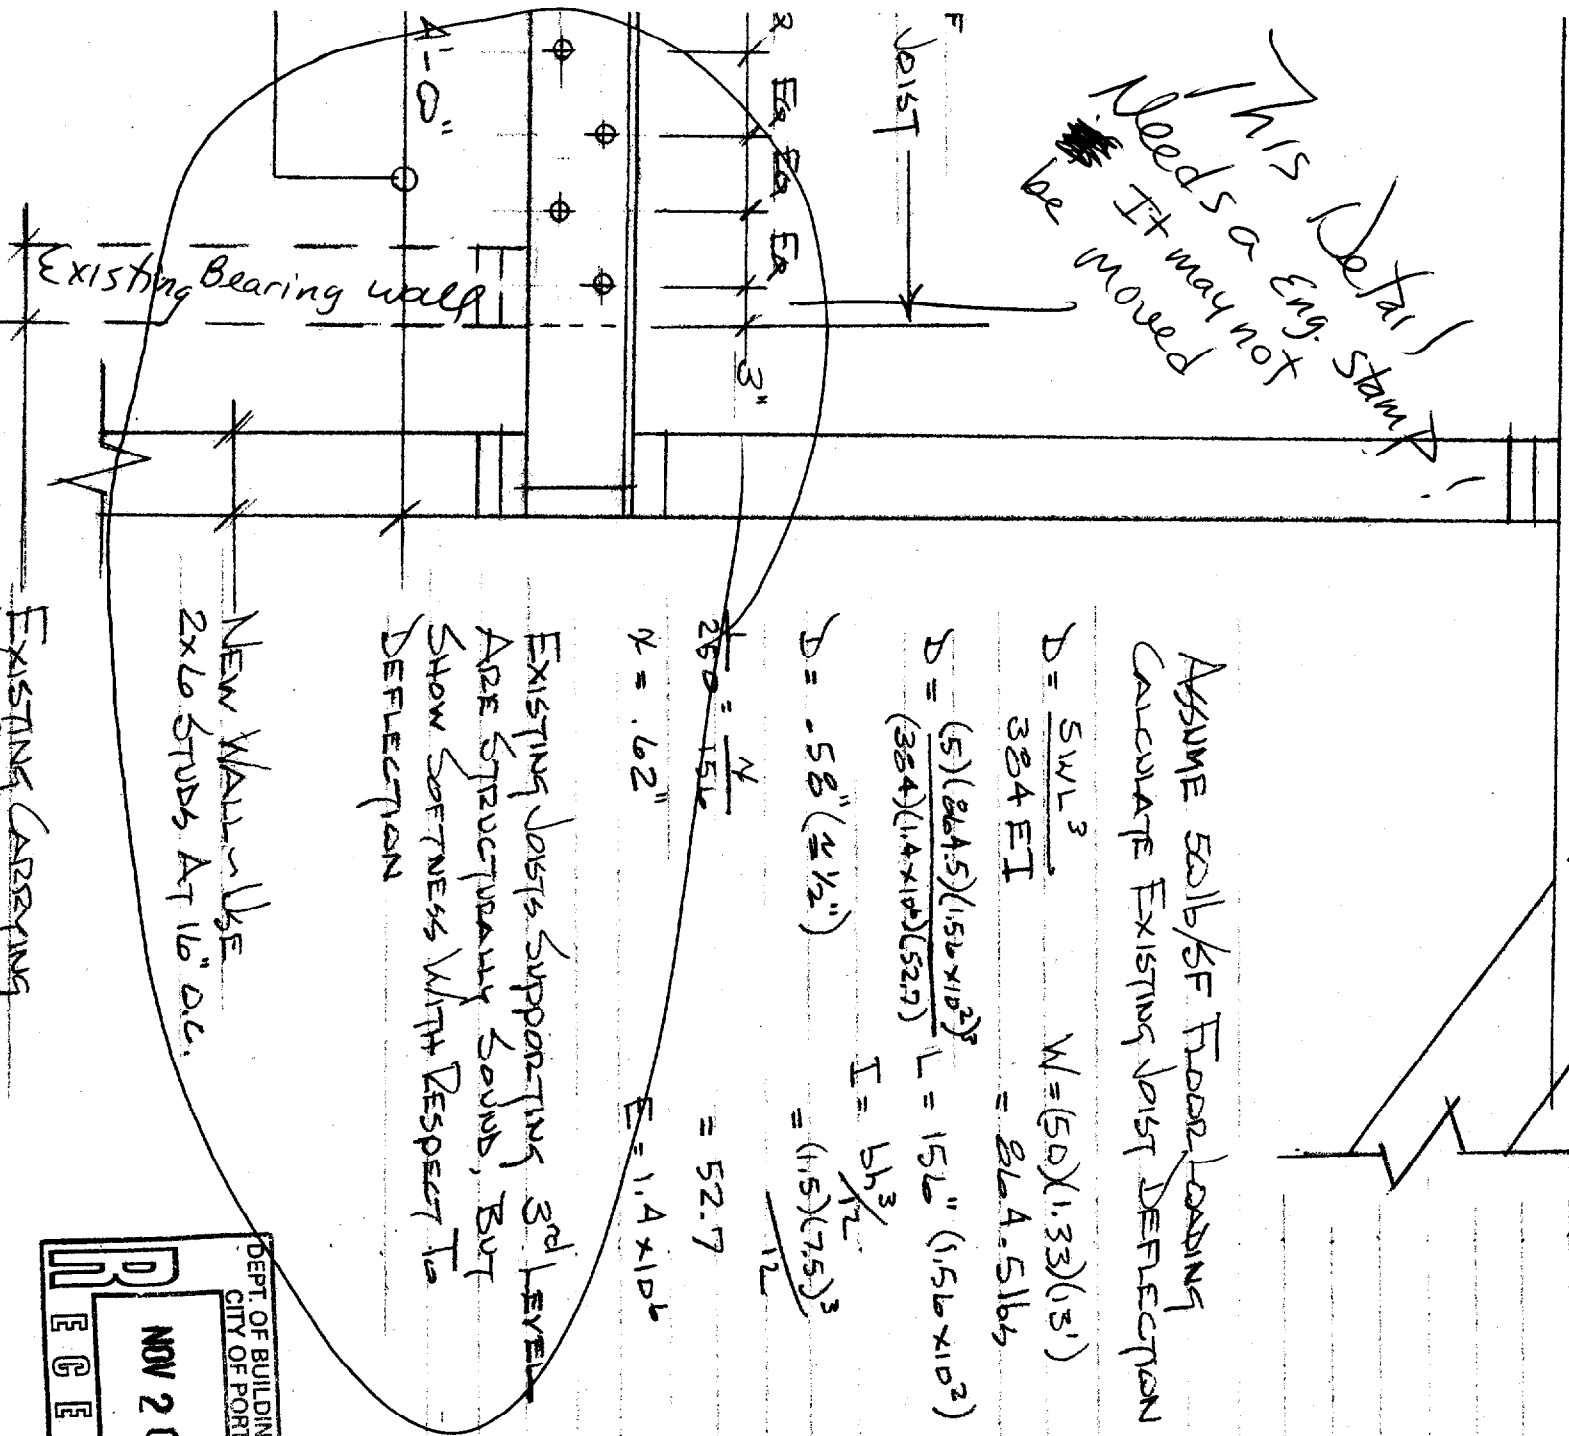 This Detail
Needs a Eng. Stamp!
It may not
be moved
JOIST
EQ
EQ
EQ
3"
4'-0"
Existing Bearing wall
ASSUME 50 lb/SF FLOOR LOADING
CALCULATE EXISTING JOIST DEFLECTION
D = 5WL³ / 384 EI
W = (50)(1.33)(13')
= 864.5 lbs
D = (5)(864.5)(1.56x10²)³ / (384)(1.4x10⁶)(52.7)
L = 156" (1.56x10²)
I = bh³/12
D = .58" (≈ 1/2")
= (1.5)(7.5)³ / 12
= 52.7
= x / 156
x = .62"
E = 1.4x10⁶
EXISTING JOISTS SUPPORTING 3rd LEVEL
ARE STRUCTURALLY SOUND, BUT
SHOW SOFTNESS WITH RESPECT TO
DEFLECTION
NEW WALL ~ USE
2x6 STUDS AT 16" O.C.
EXISTING CARRYING
DEPT. OF BUILDIN
CITY OF PORT
RECE
NOV 2